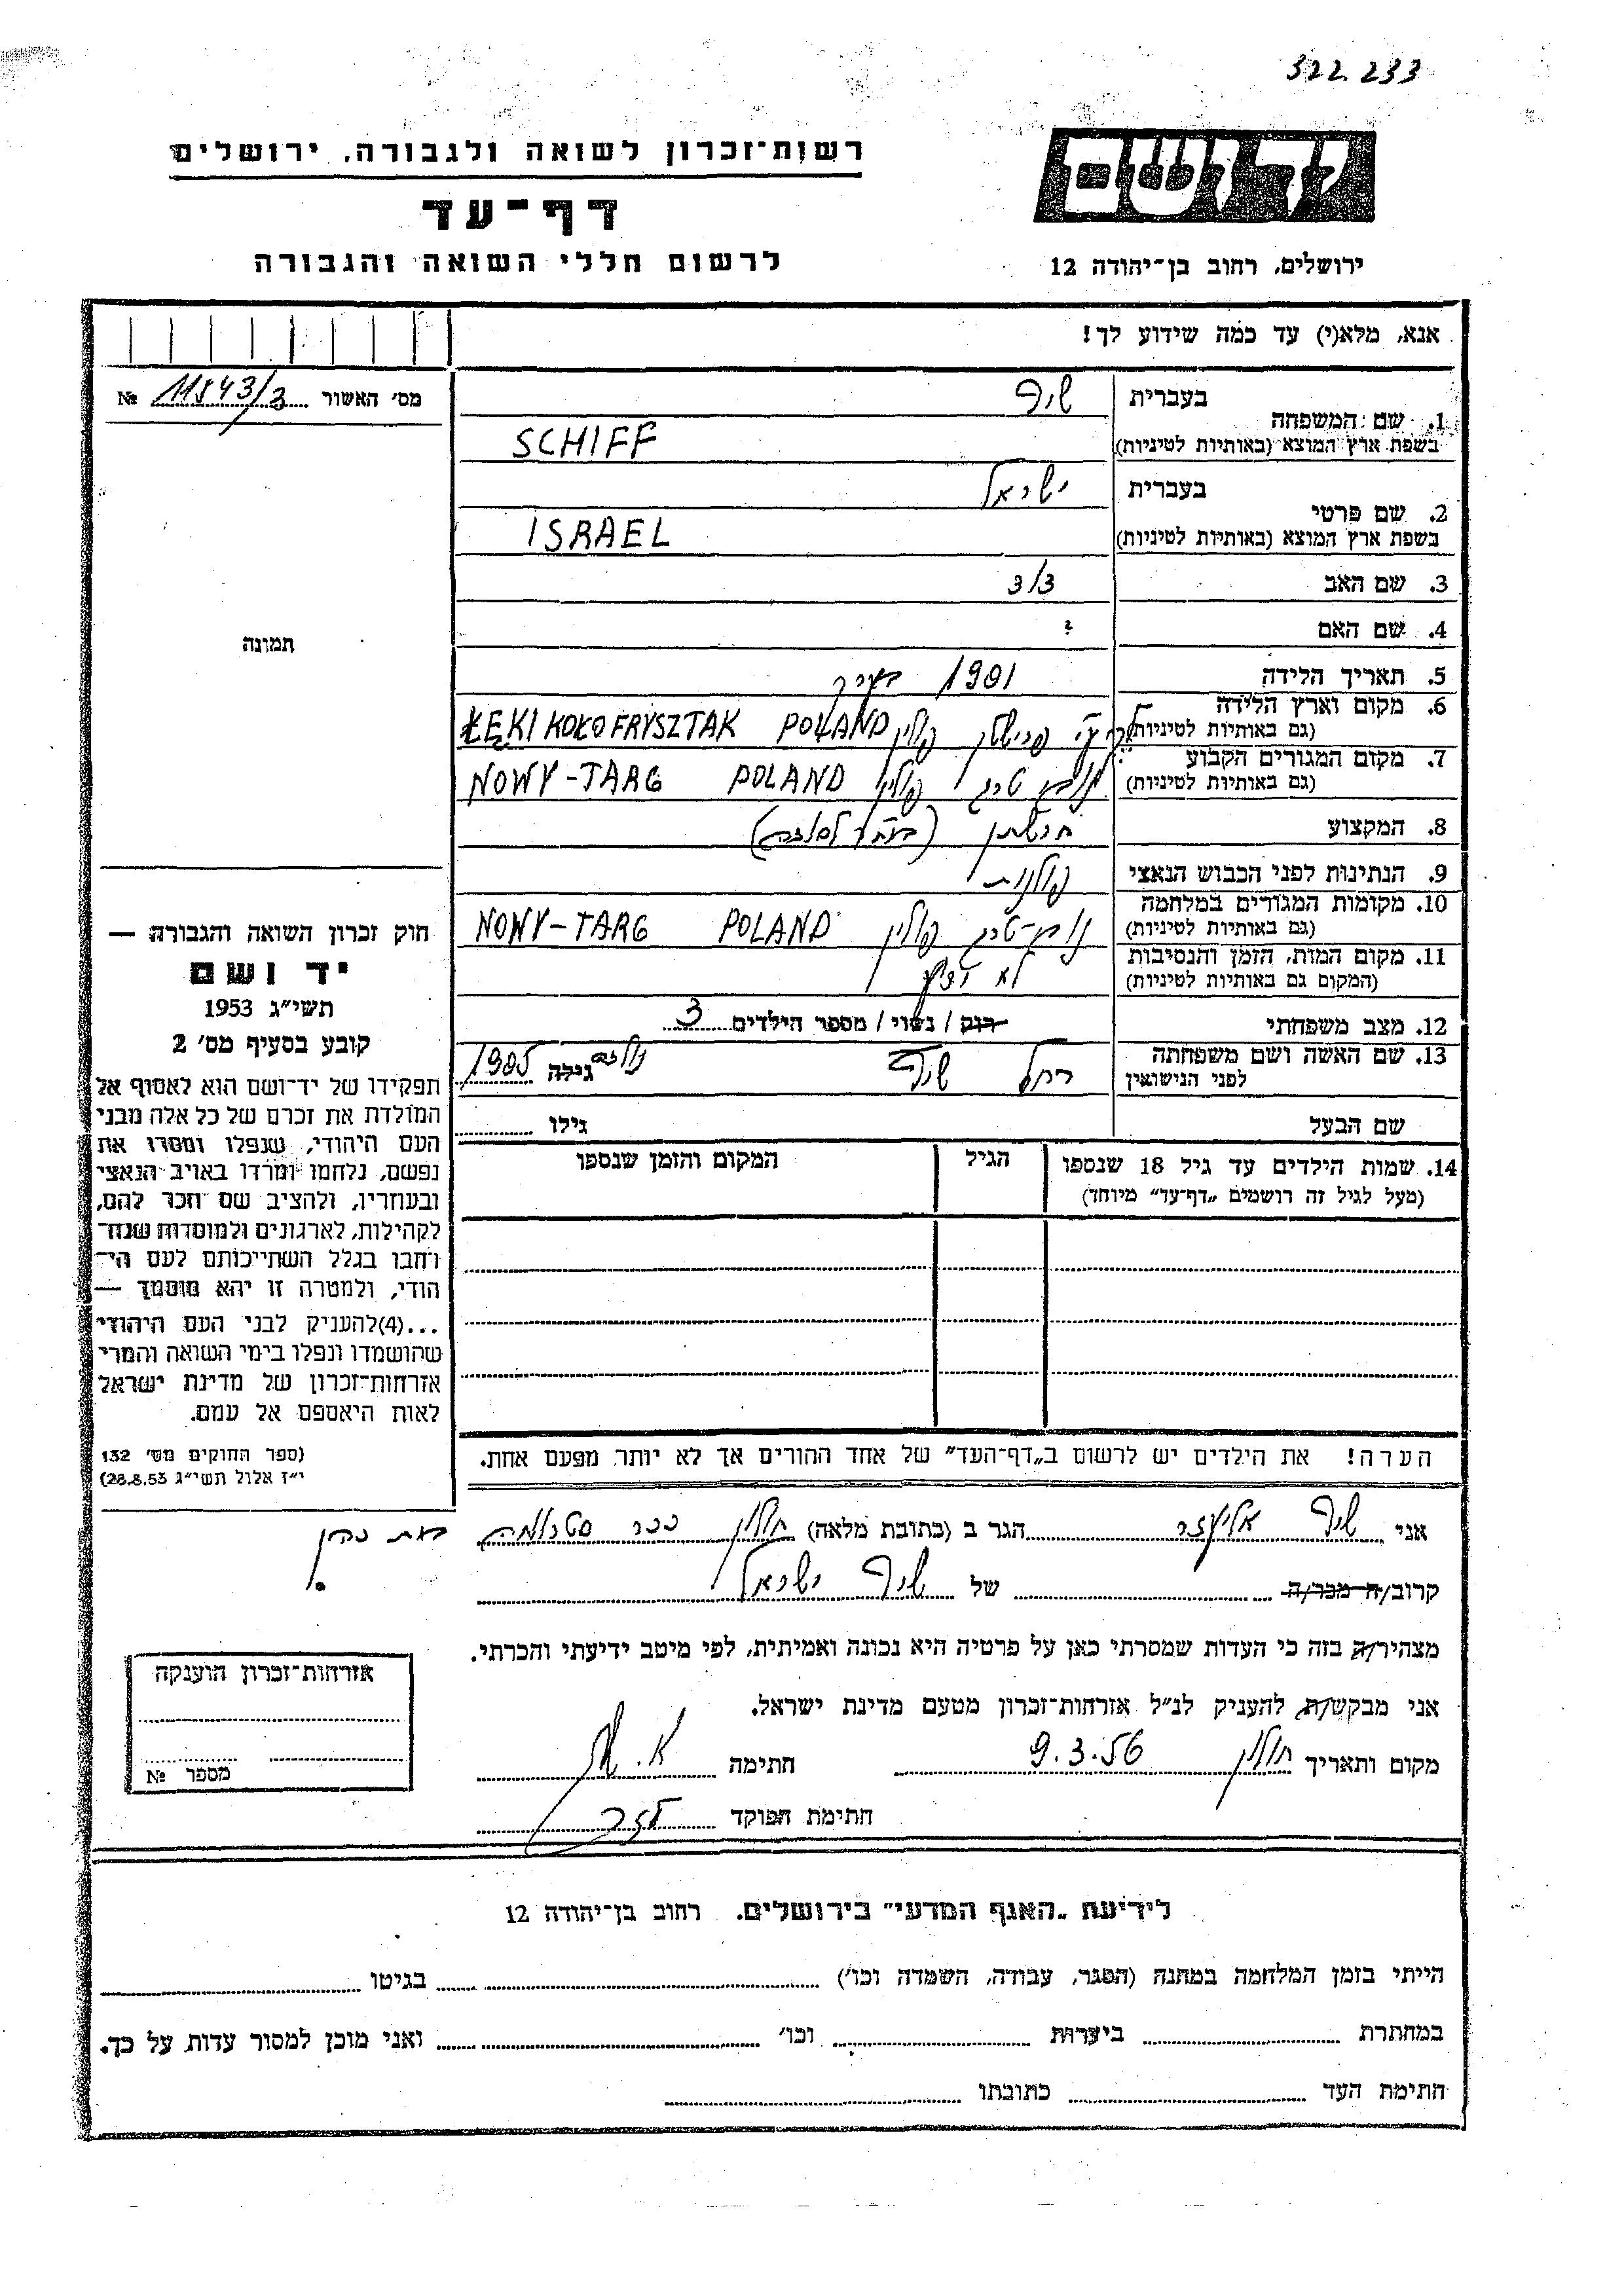 322.233
רשות־זכרון לשואה ולגבורה, ירושלים
יד ושם
דף־עד
לרשום חללי השואה והגבורה
ירושלים, רחוב בן־יהודה 12
אנא, מלא(י) עד כמה שידוע לך!
מס' האשור 11843/3 №
1. שם המשפחה בעברית שיף
בשפת ארץ המוצא (באותיות לטיניות) SCHIFF
2. שם פרטי בעברית ישראל
בשפת ארץ המוצא (באותיות לטיניות) ISRAEL
3. שם האב
4. שם האם ?
5. תאריך הלידה 1901 בערך
6. מקום וארץ הלידה פולין ŁĘKI KOŁO FRYSZTAK POLAND
(גם באותיות לטיניות)
7. מקום המגורים הקבוע נובי טרג פולין NOWY-TARG POLAND
(גם באותיות לטיניות)
8. המקצוע
9. הנתינות לפני הכבוש הנאצי פולנית
10. מקומות המגורים במלחמה נובי-טרג פולין NOWY-TARG POLAND
(גם באותיות לטיניות)
11. מקום המות, הזמן והנסיבות לא ידוע
(המקום גם באותיות לטיניות)
12. מצב משפחתי רוק / נשוי / מספר הילדים 3
13. שם האשה ושם משפחתה רחל שיף גילה נולדה 1905
לפני הנישואין
שם הבעל גילו
14. שמות הילדים עד גיל 18 שנספו הגיל המקום והזמן שנספו
(מעל לגיל זה רושמים „דף־עד” מיוחד)
הערה! את הילדים יש לרשום ב„דף־העד” של אחד ההורים אך לא יותר מפעם אחת.
תמונה
חוק זכרון השואה והגבורה —
יד ושם
תשי"ג 1953
קובע בסעיף מס' 2
תפקידו של יד־ושם הוא לאסוף אל
המולדת את זכרם של כל אלה מבני
העם היהודי, שנפלו ומסרו את
נפשם, נלחמו ומרדו באויב הנאצי
ובעוזריו, ולהציב שם וזכר להם,
לקהילות, לארגונים ולמוסדות שנח־
רבו בגלל השתייכותם לעם הי־
הודי, ולמטרה זו יהא מוסמך —
...(4)להעניק לבני העם היהודי
שהושמדו ונפלו בימי השואה והמרי
אזרחות־זכרון של מדינת ישראל
לאות היאספם אל עמם.
(ספר החוקים מס' 132
י"ז אלול תשי"ג 28.8.53)
אני שיף אליעזר הגר ב (כתובת מלאה) חולון ככר סטרומה
קרוב/ה מכר/ה של שיף ישראל
מצהיר/ה בזה כי העדות שמסרתי כאן על פרטיה היא נכונה ואמיתית, לפי מיטב ידיעתי והכרתי.
אני מבקש/ת להעניק לנ"ל אזרחות־זכרון מטעם מדינת ישראל.
מקום ותאריך חולון 9.3.56 חתימה
חתימת הפוקד
אזרחות־זכרון הוענקה
מספר №
לידיעת „האגף המדעי” בירושלים. רחוב בן־יהודה 12
הייתי בזמן המלחמה במחנה (הסגר, עבודה, השמדה וכו') בגיטו
במחתרת ביערות וכו' ואני מוכן למסור עדות על כך.
חתימת העד כתובתו